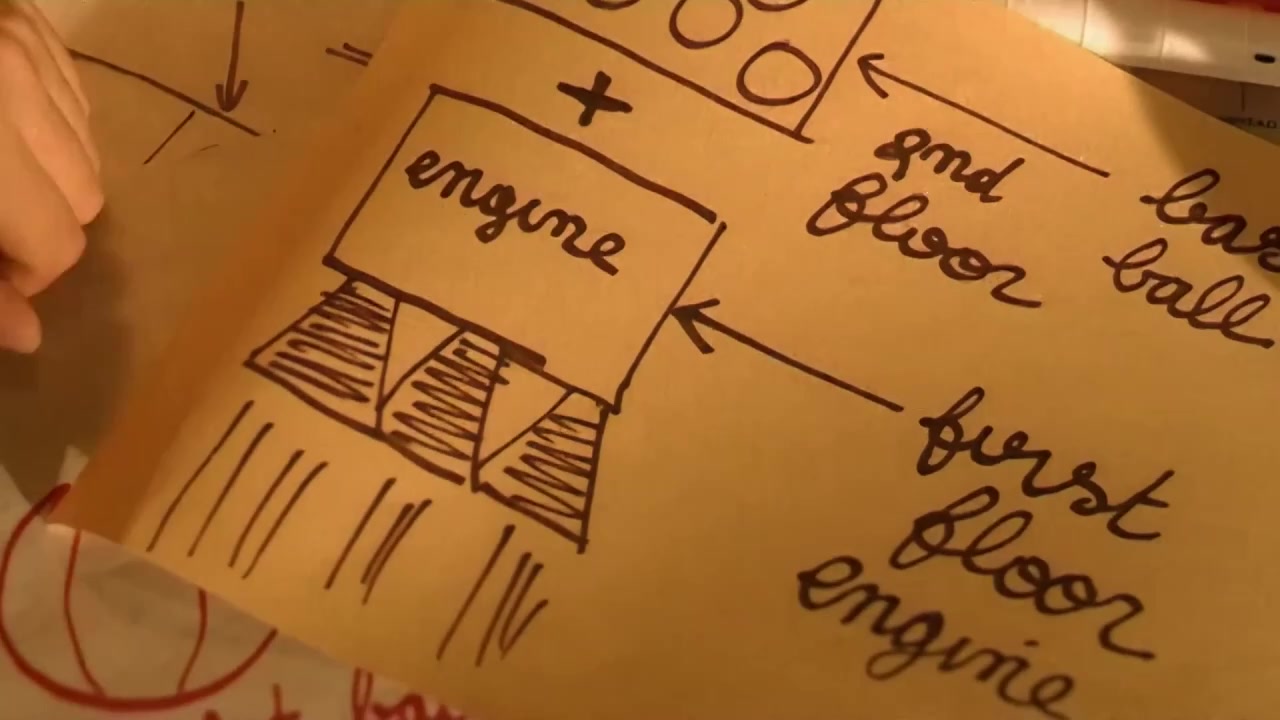 engine
2nd
floor
ball
first
floor
engine